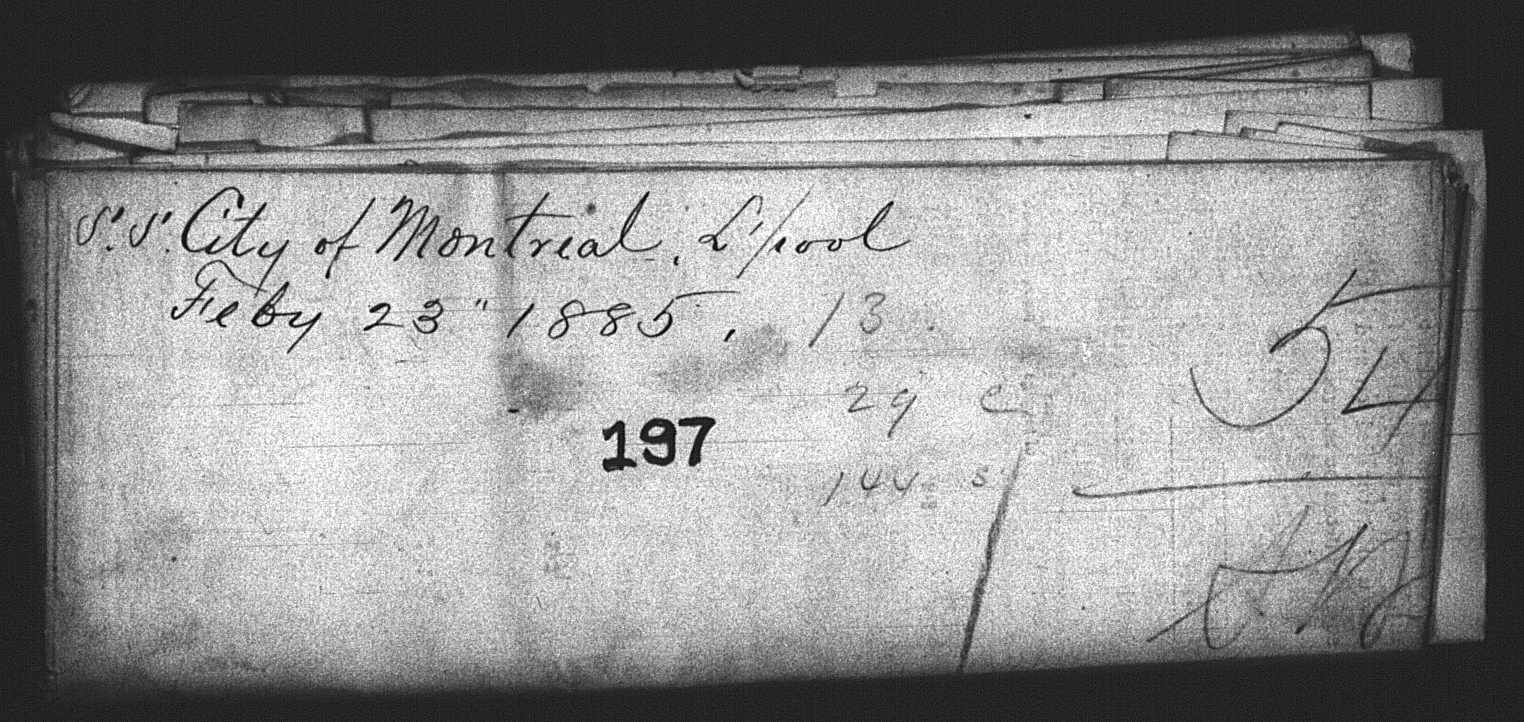 S.S. City of Montreal, L'pool
Feby 23" 1885, 13
54
29 c
197
144 s